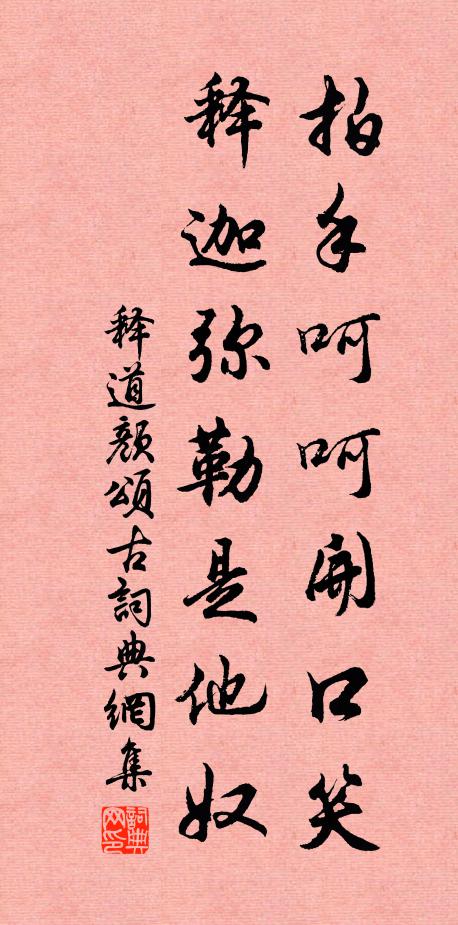 拍手呵呵開口笑
释迦弥勒是他奴
释道颜頌古詞典網集
詞典网印